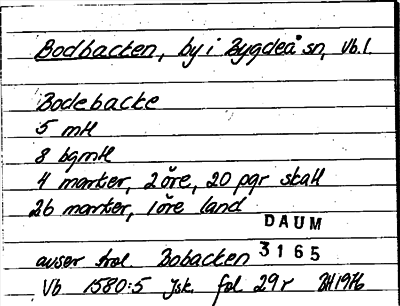 Bodbacken, by i Bygdeå sn, Vb.l.
Bodebacke
5 mtl
8 bgmtl
4 marker, 2 öre, 20 pgr skatt
26 marker, 1 öre land
DAUM
3165
avser trol. Bobacken
Vb 1580:5 Jsk. fol 29r BH 1976